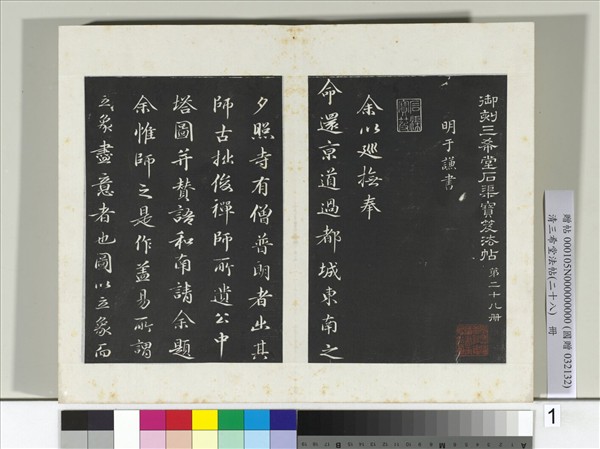 御刻三希堂石渠寶笈法帖 第二十八冊
明于謙書
余以巡撫奉
命還京道過都城東南之
夕照寺有僧普朗者出其
師古拙俊禪師所遺公中
塔圖并贊語和南請余題
余惟師之是作蓋易所謂
立象盡意者也圖以立象而
贈帖 000105N000000000 (國贈 032132)
清 三希堂法帖(二十八) 冊
1